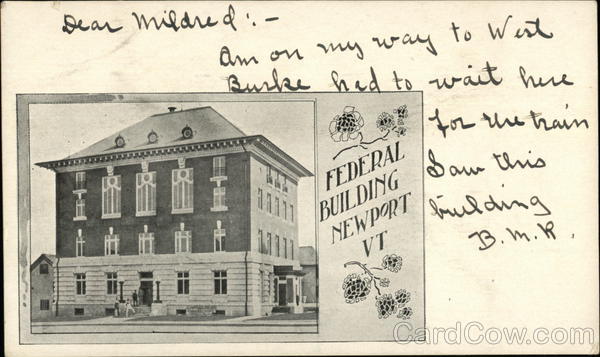 Dear Mildred:-
Am on my way to West
Burke had to wait here
for the train
Saw this
building
B.M.R.
FEDERAL
BUILDING
NEWPORT
VT
CardCow.com